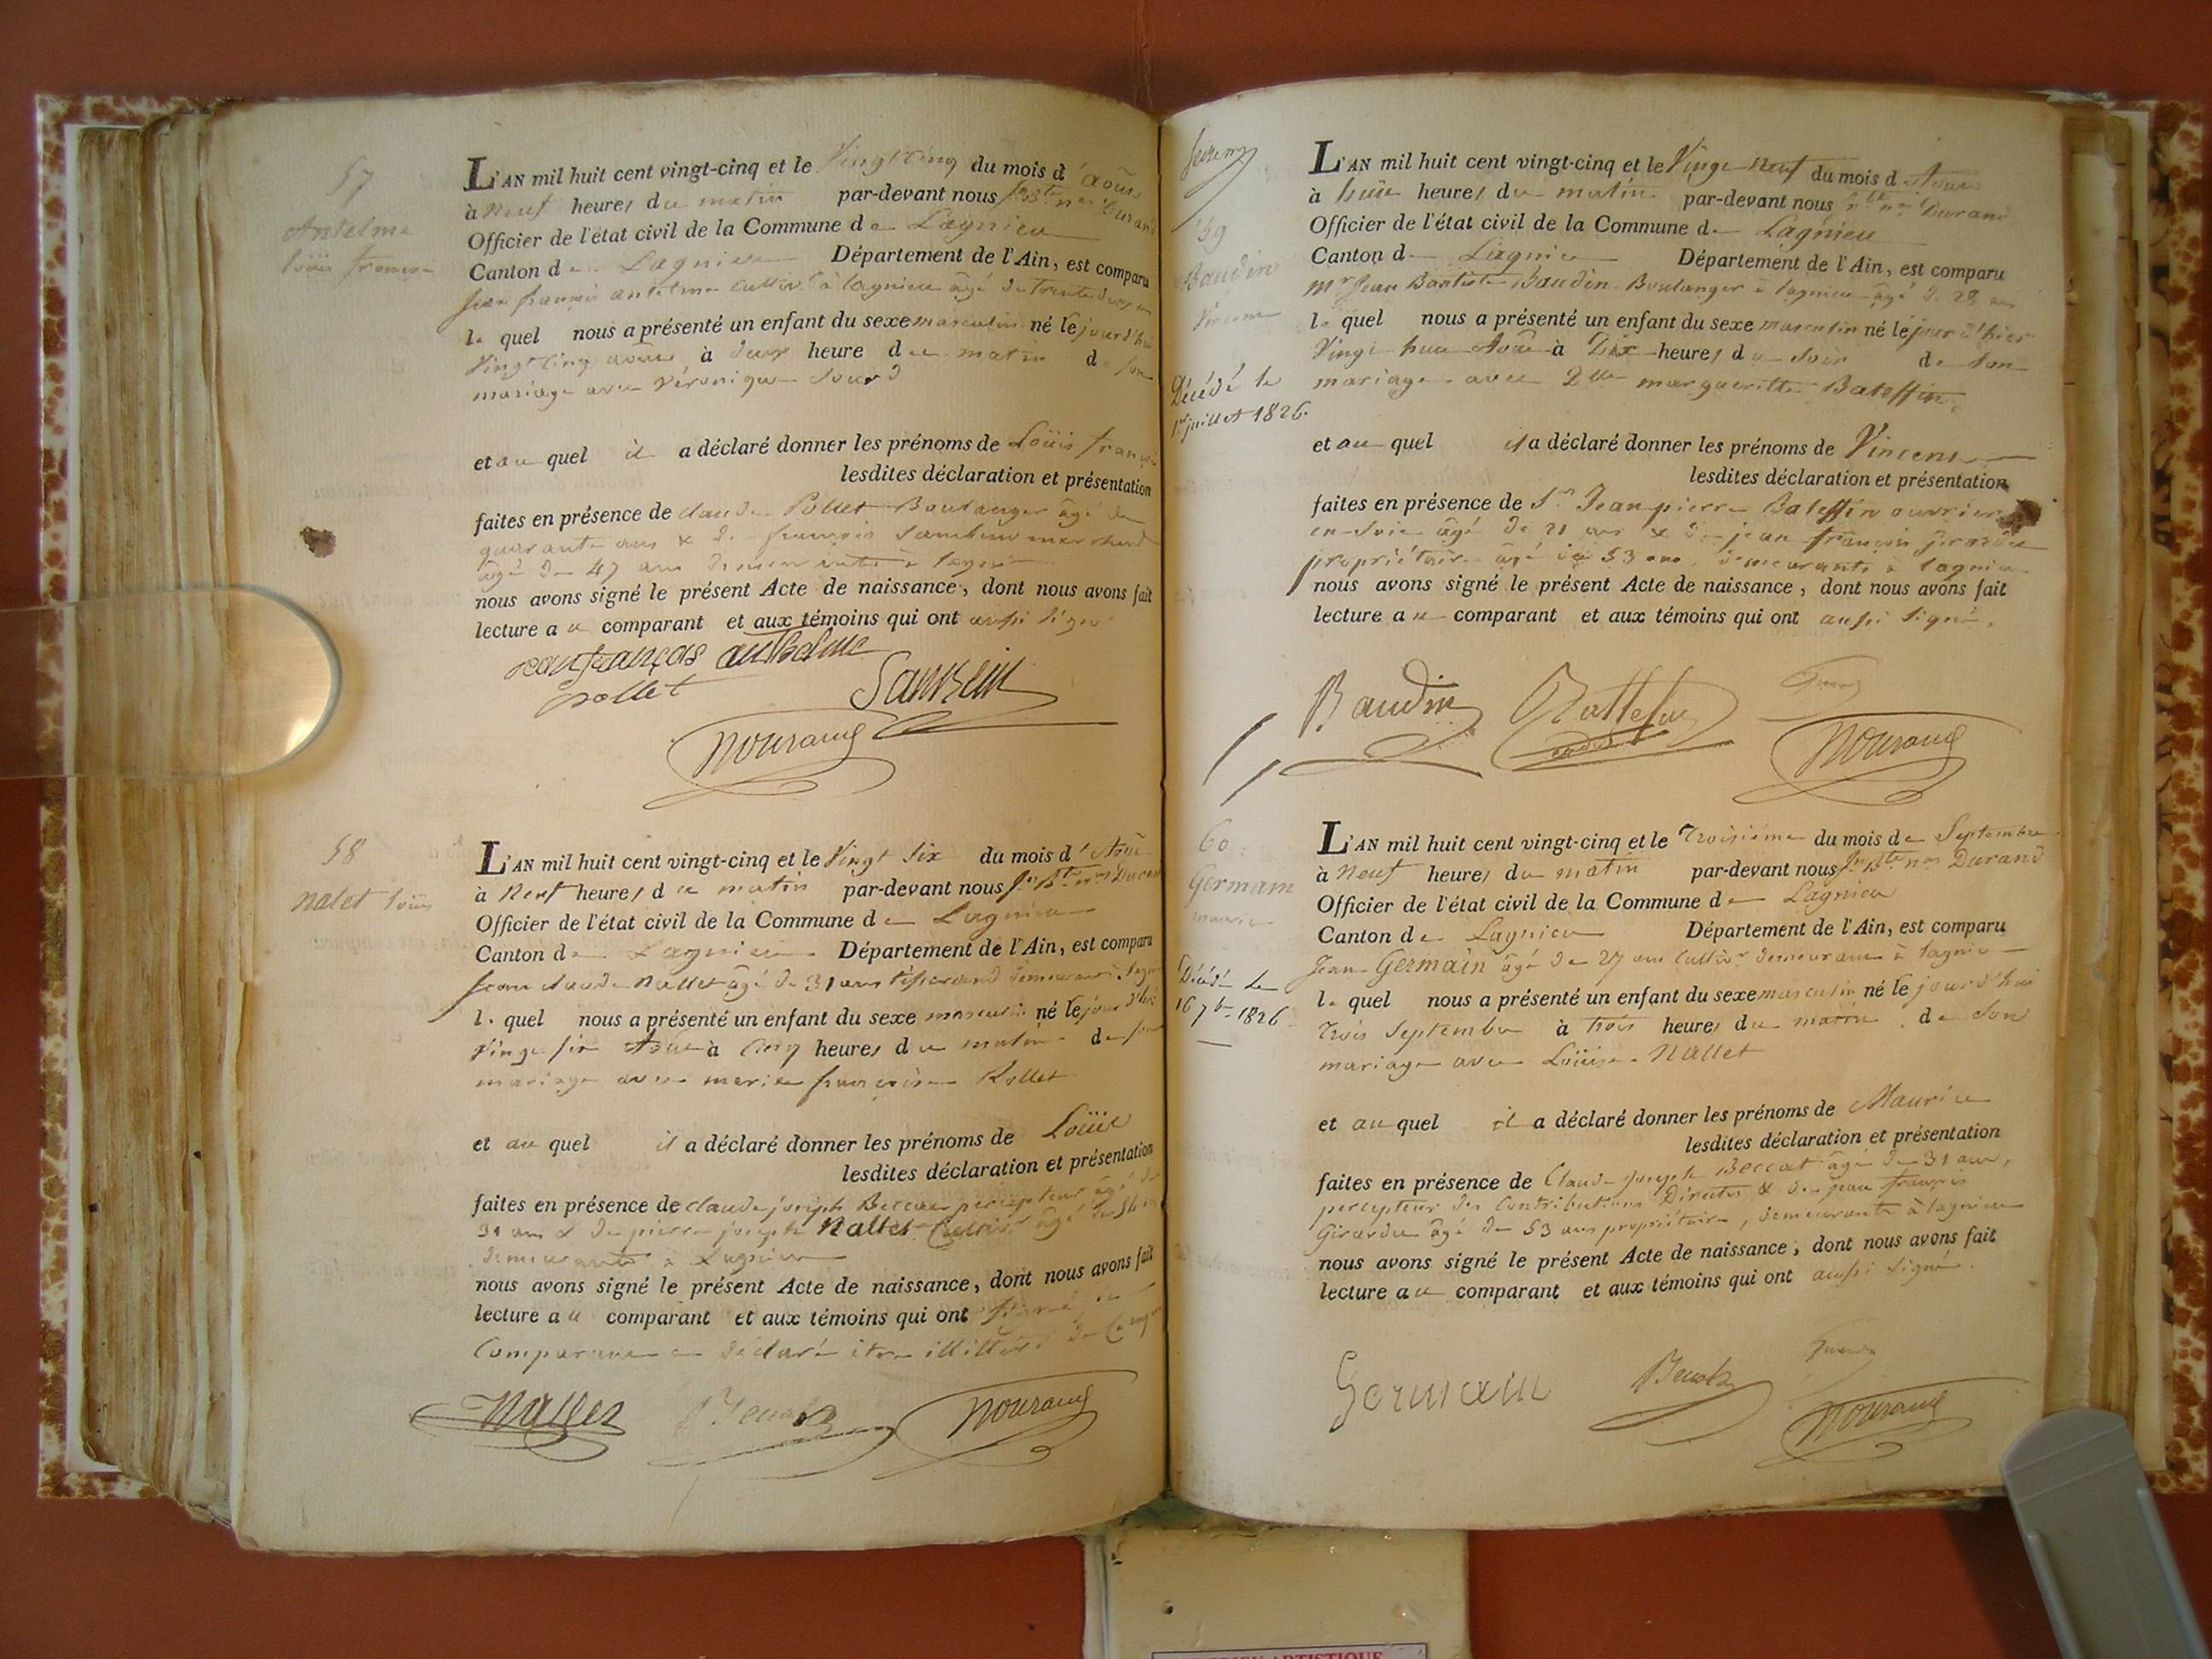 57
Antelme
Loüis francois
L'AN mil huit cent vingt-cinq et le Vingt Cinq du mois d'aoûst
à Neuf heures du matin par-devant nous Jn Bte nas Durand
Officier de l'état civil de la Commune de Lagnieu
Canton de Lagnieu Département de l'Ain, est comparu
Jean francois antelme Cultivr à lagnieu âgé de trente deux ans
le quel nous a présenté un enfant du sexe masculin né le jourd'hui
Vingt Cinq aoûst à deux heure du matin de son
mariage avec Véronique
et au quel il a déclaré donner les prénoms de Loüis francois
lesdites déclaration et présentation
faites en présence de claude Pollet Boulanger âgé de
quarante ans & de francois marchand
âgé de 47 ans demeurants à lagnieu
nous avons signé le présent Acte de naissance, dont nous avons fait
lecture au comparant et aux témoins qui ont aussi signé
Jean françois anthelme
pollet
58
nalet Loüis
L'AN mil huit cent vingt-cinq et le Vingt Six du mois d'Aoûst
à Neuf heures du matin par-devant nous Jn Bte nas Durand
Officier de l'état civil de la Commune de Lagnieu
Canton de Lagnieu Département de l'Ain, est comparu
Jean claude Nallet âgé de 31 ans tisserand demeurant à lagnieu
le quel nous a présenté un enfant du sexe masculin né le jourd'hui
Vingt six Aoust à Cinq heures du matin de son
mariage avec marie françoise Rollet
et au quel il a déclaré donner les prénoms de Loüis
lesdites déclaration et présentation
faites en présence de claude joseph Beccat percepteur âgé de
31 ans & de pierre joseph Nallet Cultivr âgé de
demeurants à Lagnieu
nous avons signé le présent Acte de naissance, dont nous avons fait
lecture au comparant et aux témoins qui ont signé, le
Comparant a déclaré être illittéré de
Nallet
59
Baudin
Vincent
Décédé le
1er juillet 1826.
L'AN mil huit cent vingt-cinq et le Vingt Neuf du mois d'Aoust
à huit heures du matin par-devant nous Durand
Officier de l'état civil de la Commune de Lagnieu
Canton de Lagnieu Département de l'Ain, est comparu
Mr Jean Baptiste Baudin Boulanger à lagnieu âgé de 28 ans
le quel nous a présenté un enfant du sexe masculin né le jour d'hier
Vingt huit Aoûst à Dix heures du soir de son
mariage avec Dlle margueritte Bateffin
et au quel il a déclaré donner les prénoms de Vincent
lesdites déclaration et présentation
faites en présence de Sr Jean pierre Bateffin ouvrier
en soie âgé de 21 ans & de jean françois Girardet
propriétaire âgé de 53 ans, demeurants à lagnieu
nous avons signé le présent Acte de naissance, dont nous avons fait
lecture au comparant et aux témoins qui ont aussi signé.
Baudin
60
Germain
maurice
Décédé le
16 7bre 1826
L'AN mil huit cent vingt-cinq et le Troisieme du mois de Septembre
à Neuf heures du matin par-devant nous Jn Bte nas Durand
Officier de l'état civil de la Commune de Lagnieu
Canton de Lagnieu Département de l'Ain, est comparu
Jean Germain âgé de 27 ans Cultivr demeurant à lagnieu
le quel nous a présenté un enfant du sexe masculin né le jourd'hui
Trois Septembre à trois heures du matin de son
mariage avec Loüise Nallet
et au quel il a déclaré donner les prénoms de Maurice
lesdites déclaration et présentation
faites en présence de Claude joseph Beccat âgé de 31 ans,
percepteur des Contributions Directes & de jean françois
Girardet âgé de 53 ans propriétaire, demeurants à lagnieu
nous avons signé le présent Acte de naissance, dont nous avons fait
lecture au comparant et aux témoins qui ont aussi signé.
Germain